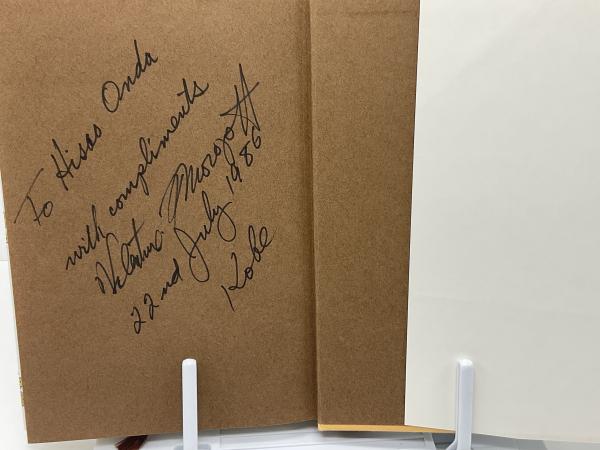 To Hisao Onda
with compliments
Valentine Morozoff
22nd July 1986
Kobe